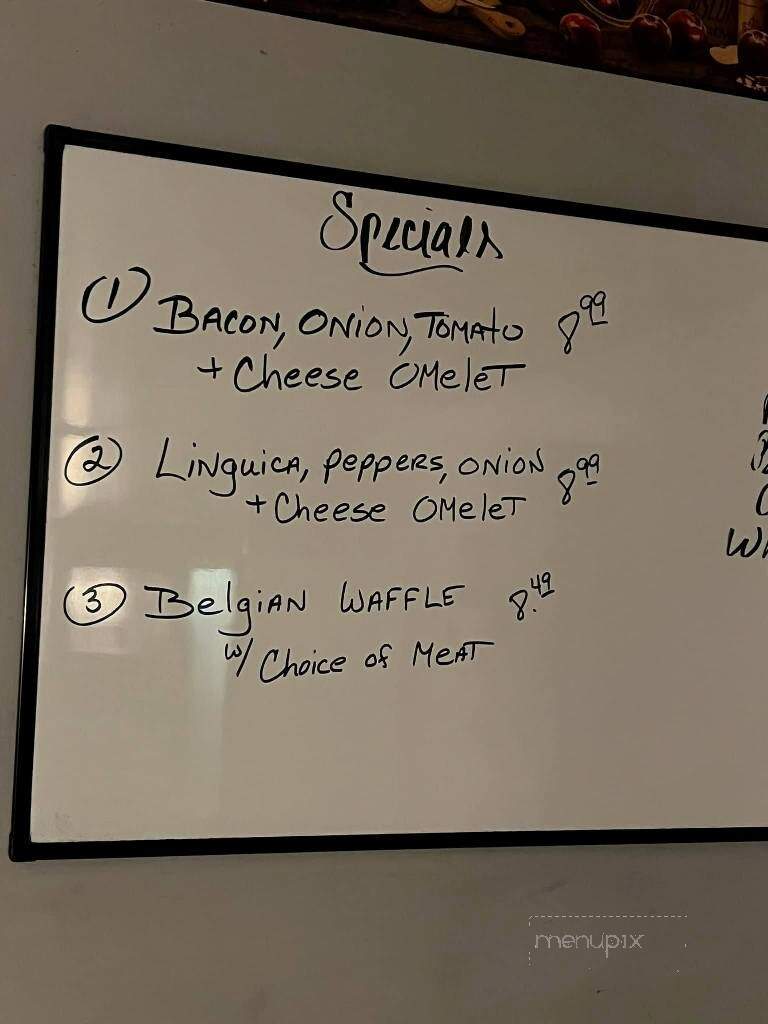 Specials
① BACON, ONION, TOMATO 8 99
+ Cheese OMeleT
② LinguicA, PePPeRS, ONION 8 99
+ Cheese OMeleT
③ BelgiAN WAFFLE 8.49
w/ Choice of MeAT
menupix